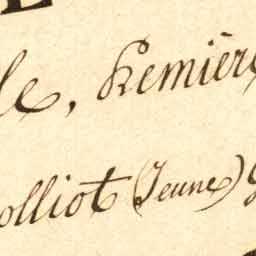 le, Remière
olliot (Jeune)